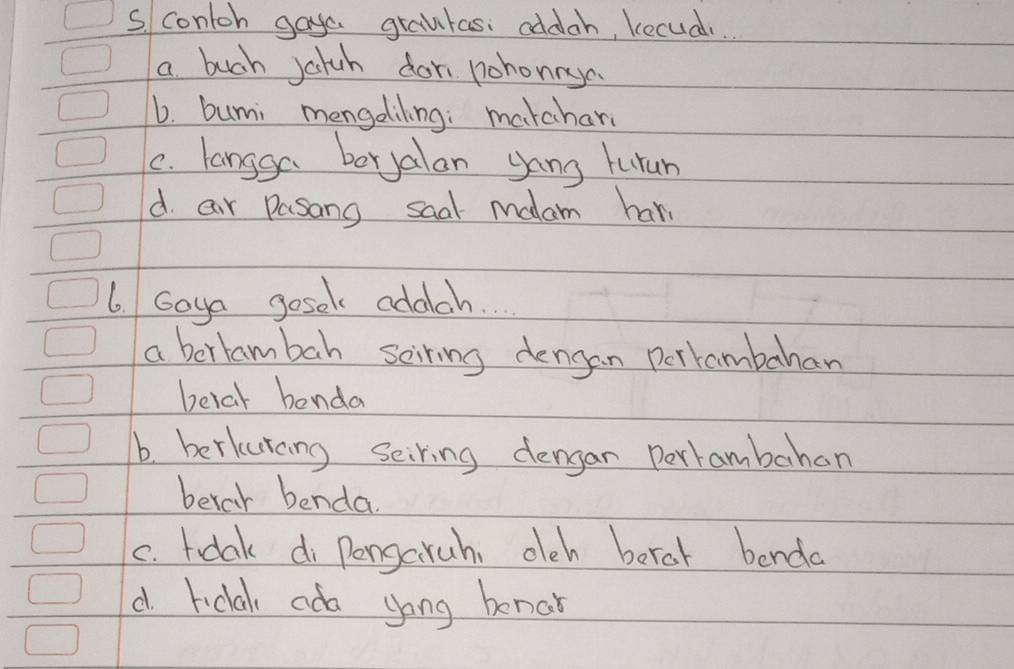 5. Contoh gaya gravitasi adalah, kecuali...
a. buah jatuh dari pohonnya.
b. bumi mengelilingi matahari
c. tangga berjalan yang turun
d. air pasang saat malam hari
6. Gaya gesek adalah....
a. bertambah seiring dengan pertambahan
berat benda
b. berkurang seiring dengan pertambahan
berat benda.
c. tidak di pengaruhi oleh berat benda
d. tidak ada yang benar